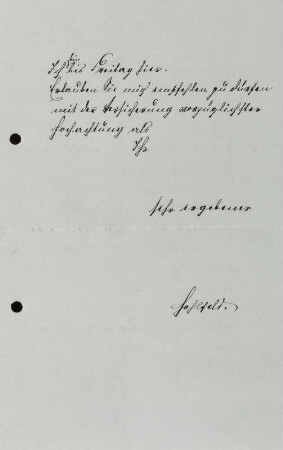 bin
Ich bis Freitag hier.
Erlauben Sie mich empfehlen zu dürfen
mit der Versicherung vorzüglichster
Hochachtung als
Ihr
sehr ergebener
Hohlfeld.